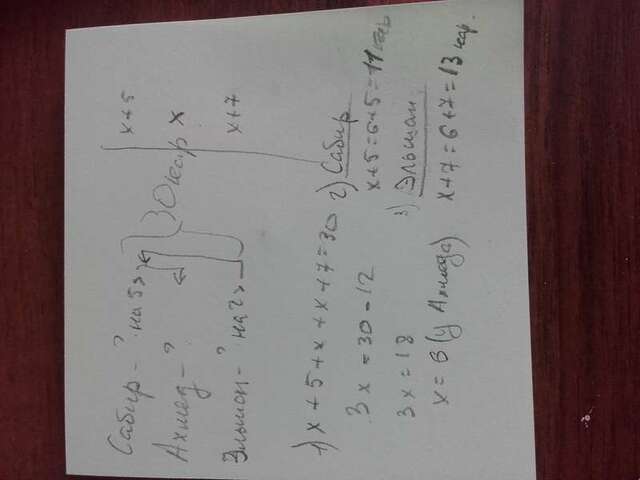 Сабир - ? на 5 >
Ахмед - ?
Эльшан - ? на 2 >
30 кар
x + 5
x
x + 7
1) x + 5 + x + x + 7 = 30
3x = 30 - 12
3x = 18
x = 6 (у Ахмеда)
2) Сабир
x + 5 = 6 + 5 = 11 кар
3) Эльшан
x + 7 = 6 + 7 = 13 кар.